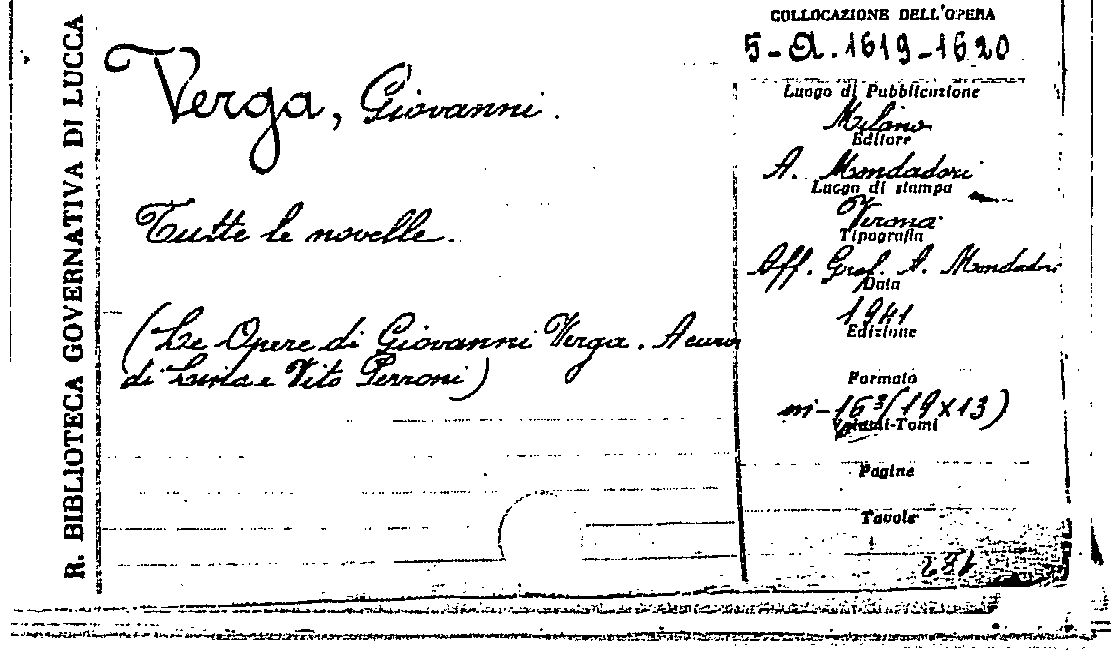 R. BIBLIOTECA GOVERNATIVA DI LUCCA
Verga, Giovanni.
Tutte le novelle.
(Le Opere di Giovanni Verga. A cura
di Lina e Vito Perroni)
COLLOCAZIONE DELL'OPERA
5-A.1619-1620
Luogo di Pubblicazione
Milano
Editore
A. Mondadori
Luogo di stampa
Verona
Tipografia
Off. Graf. A. Mondadori
Data
1941
Edizione
Formato
in-16º (19x13)
Volumi-Tomi
Pagine
Tavole